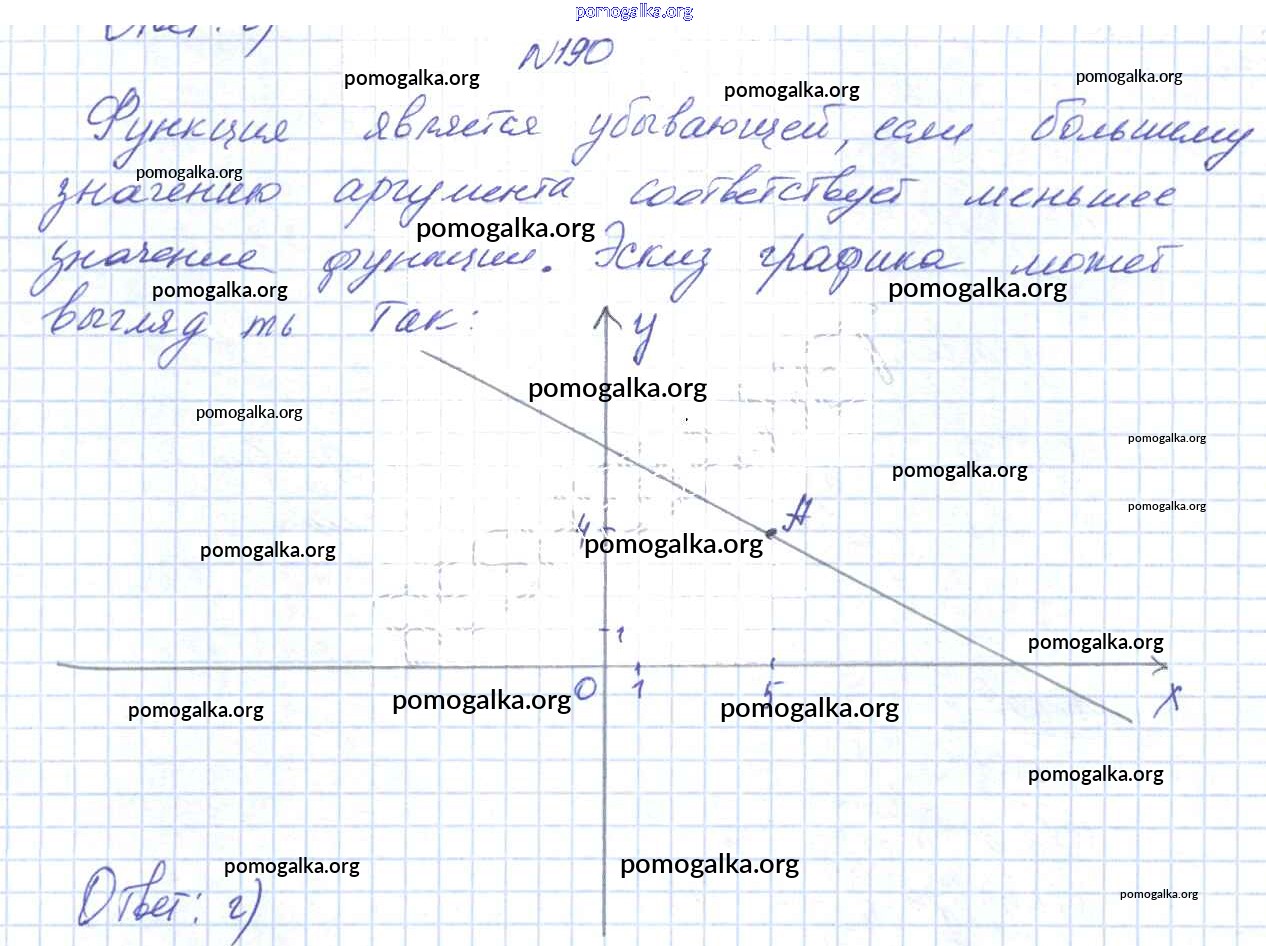 pomogalka.org
№190
pomogalka.org pomogalka.org pomogalka.org
Функция является убывающей, если большему
pomogalka.org
значению аргумента соответствует меньшее
pomogalka.org
значение функции. Эскиз графика может
pomogalka.org pomogalka.org
выгляд ть так:
y
pomogalka.org
pomogalka.org
pomogalka.org
pomogalka.org
pomogalka.org
A
4
pomogalka.org pomogalka.org
1
pomogalka.org
0 1 5 x
pomogalka.org pomogalka.org pomogalka.org
pomogalka.org
pomogalka.org pomogalka.org
pomogalka.org
Ответ: г)